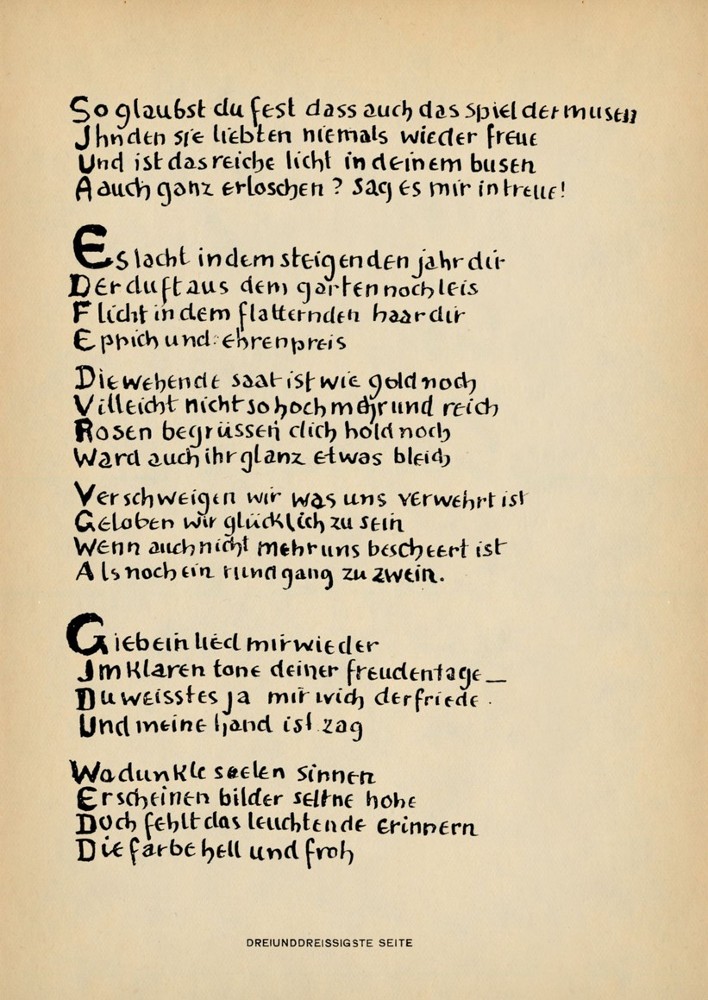 So glaubst du fest dass auch das spiel der musen
Ihn den sie liebten niemals wieder freue
Und ist das reiche licht in deinem busen
Auch ganz erloschen? sag es mir in treue!
Es lacht in dem steigenden jahr dir
Der duft aus dem garten noch leis
Flicht in dem flatternden haar dir
Eppich und ehrenpreis
Die wehende saat ist wie gold noch
Villeicht nicht so hoch mehr und reich
Rosen begrüssen dich hold noch
Ward auch ihr glanz etwas bleich
Verschweigen wir was uns verwehrt ist
Geloben wir glücklich zu sein
Wenn auch nicht mehr uns bescheert ist
Als noch ein rundgang zu zwein.
Gieb ein lied mir wieder
Im klaren tone deiner freudentage_
Du weisst es ja mir wich der friede
Und meine hand ist zag
Wo dunkle seelen sinnen
Erscheinen bilder seltne hohe
Doch fehlt das leuchtende erinnern
Die farbe hell und froh
DREIUNDDREISSIGSTE SEITE